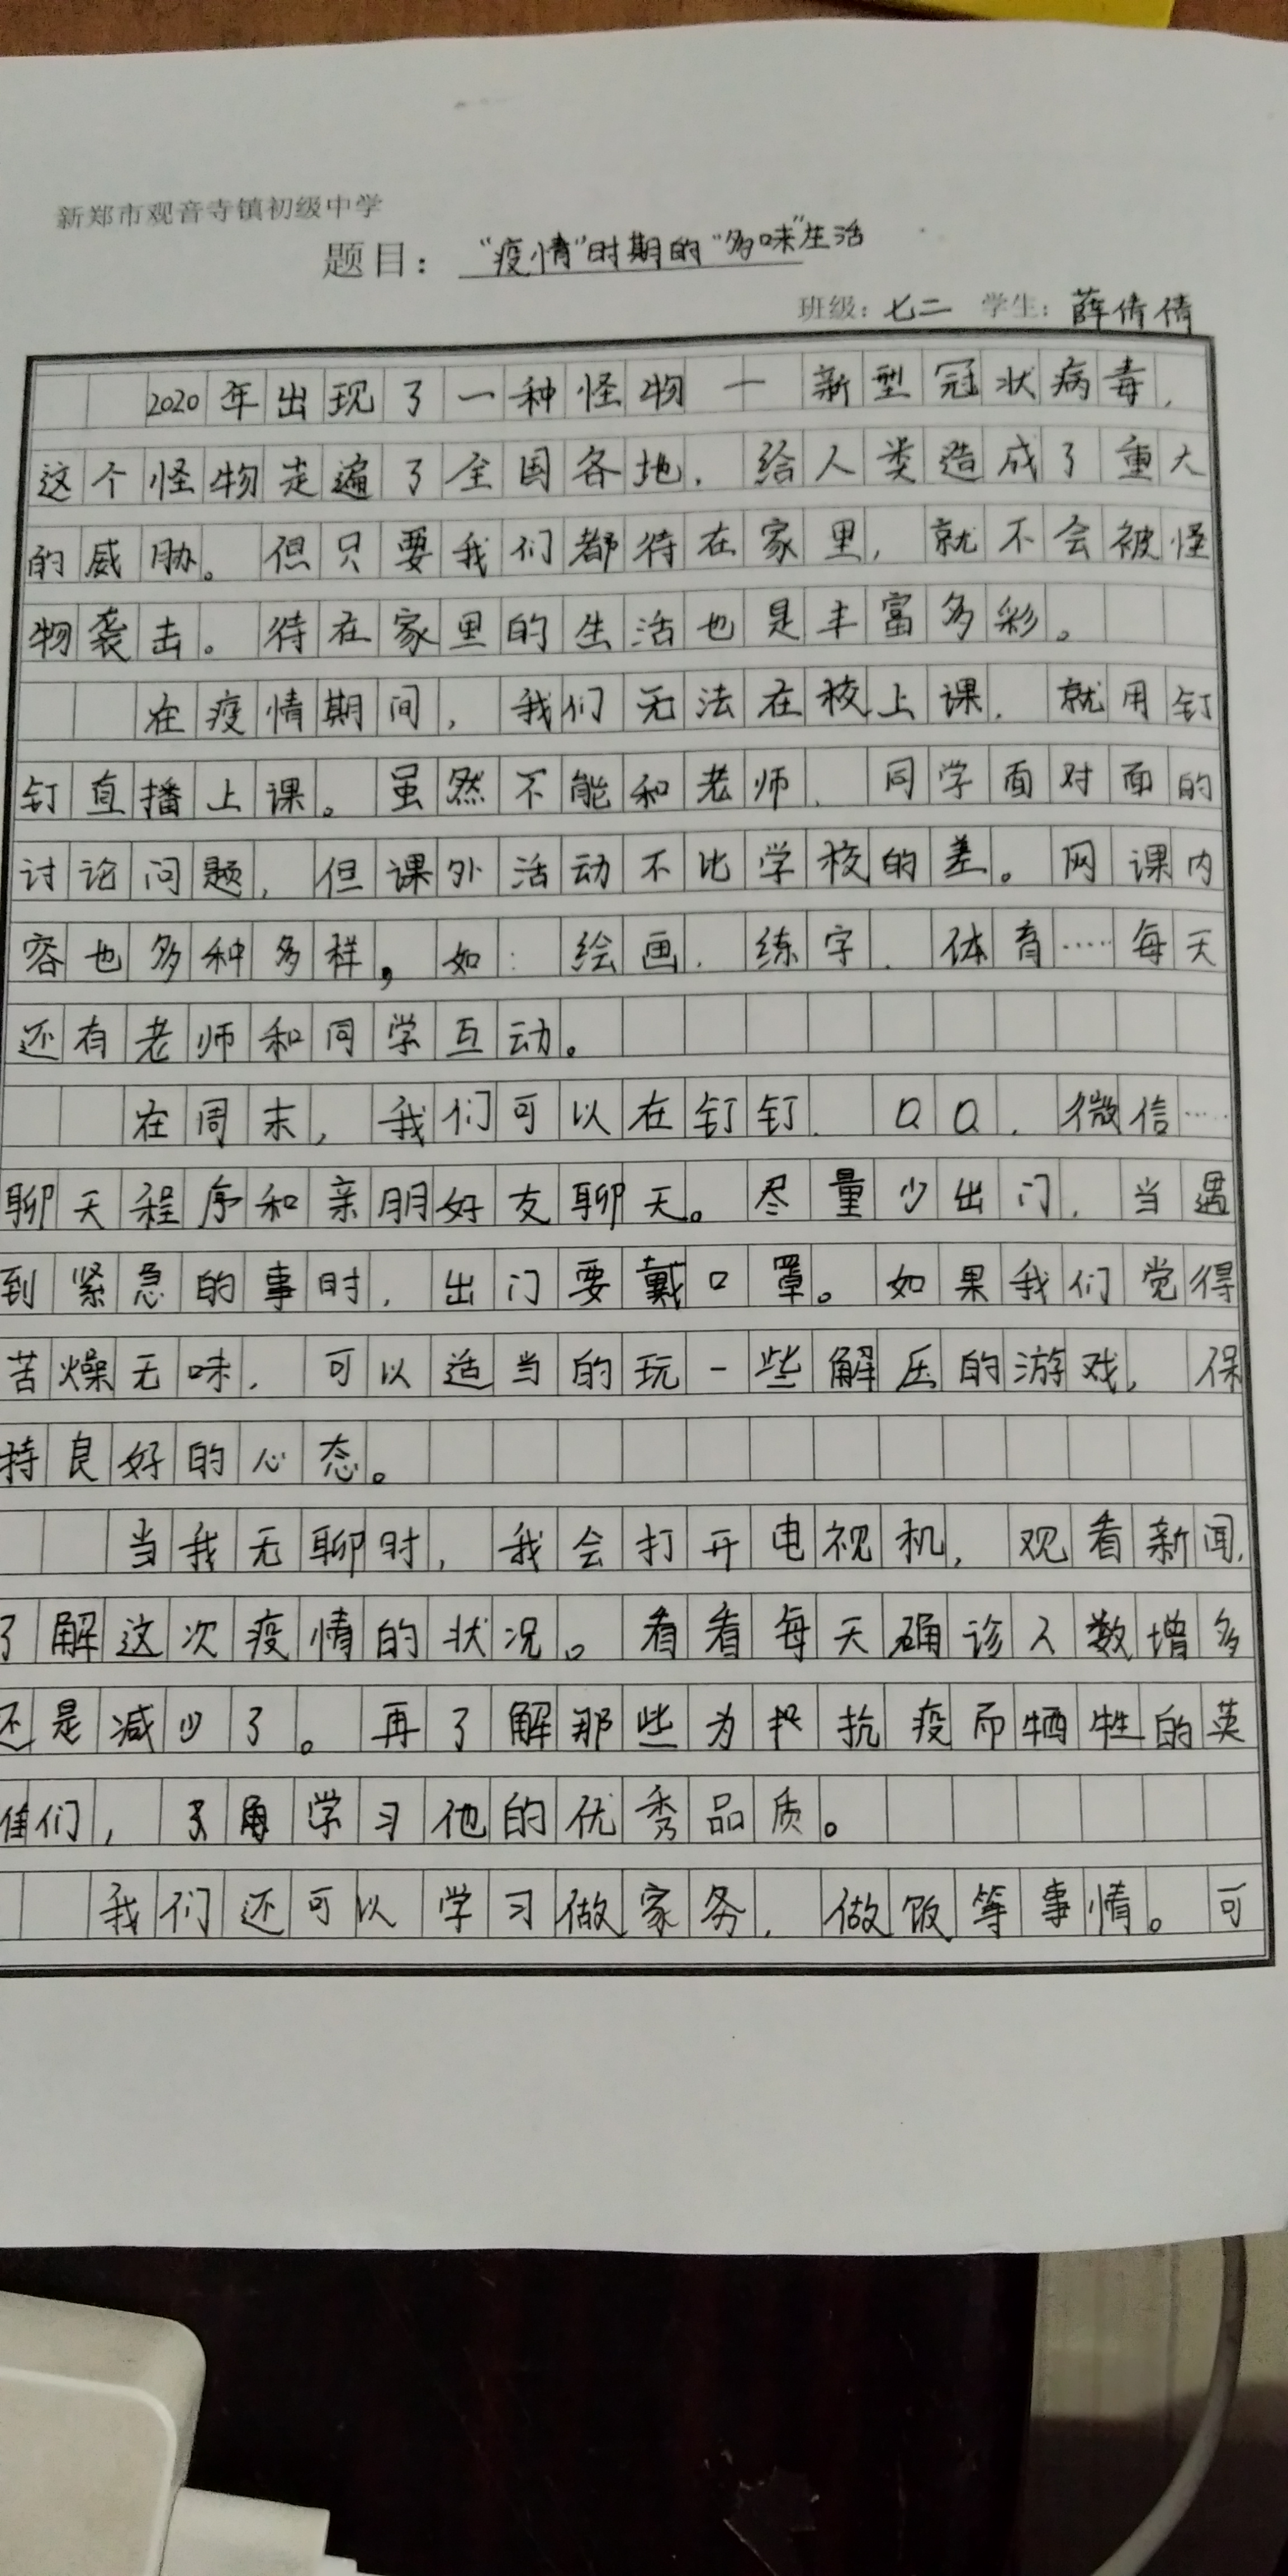 新郑市观音寺镇初级中学
题目：“疫情”时期的“多味”生活
班级：七二 学生：薛倩倩
2020年出现了一种怪物一新型冠状病毒，
这个怪物走遍了全国各地，给人类造成了重大
的威胁。但只要我们都待在家里，就不会被怪
物袭击。待在家里的生活也是丰富多彩。
在疫情期间，我们无法在校上课，就用钉
钉直播上课。虽然不能和老师、同学面对面的
讨论问题，但课外活动不比学校的差。网课内
容也多种多样，如：绘画、练字、体育……每天
还有老师和同学互动。
在周末，我们可以在钉钉、QQ、微信……
聊天程序和亲朋好友聊天。尽量少出门，当遇
到紧急的事时，出门要戴口罩。如果我们觉得
苦燥无味，可以适当的玩一些解压的游戏，保
持良好的心态。
当我无聊时，我会打开电视机，观看新闻，
了解这次疫情的状况。看看每天确诊人数增多
还是减少了。再了解那些为抗疫而牺牲的英
雄们，学习他的优秀品质。
我们还可以学习做家务，做饭等事情。可